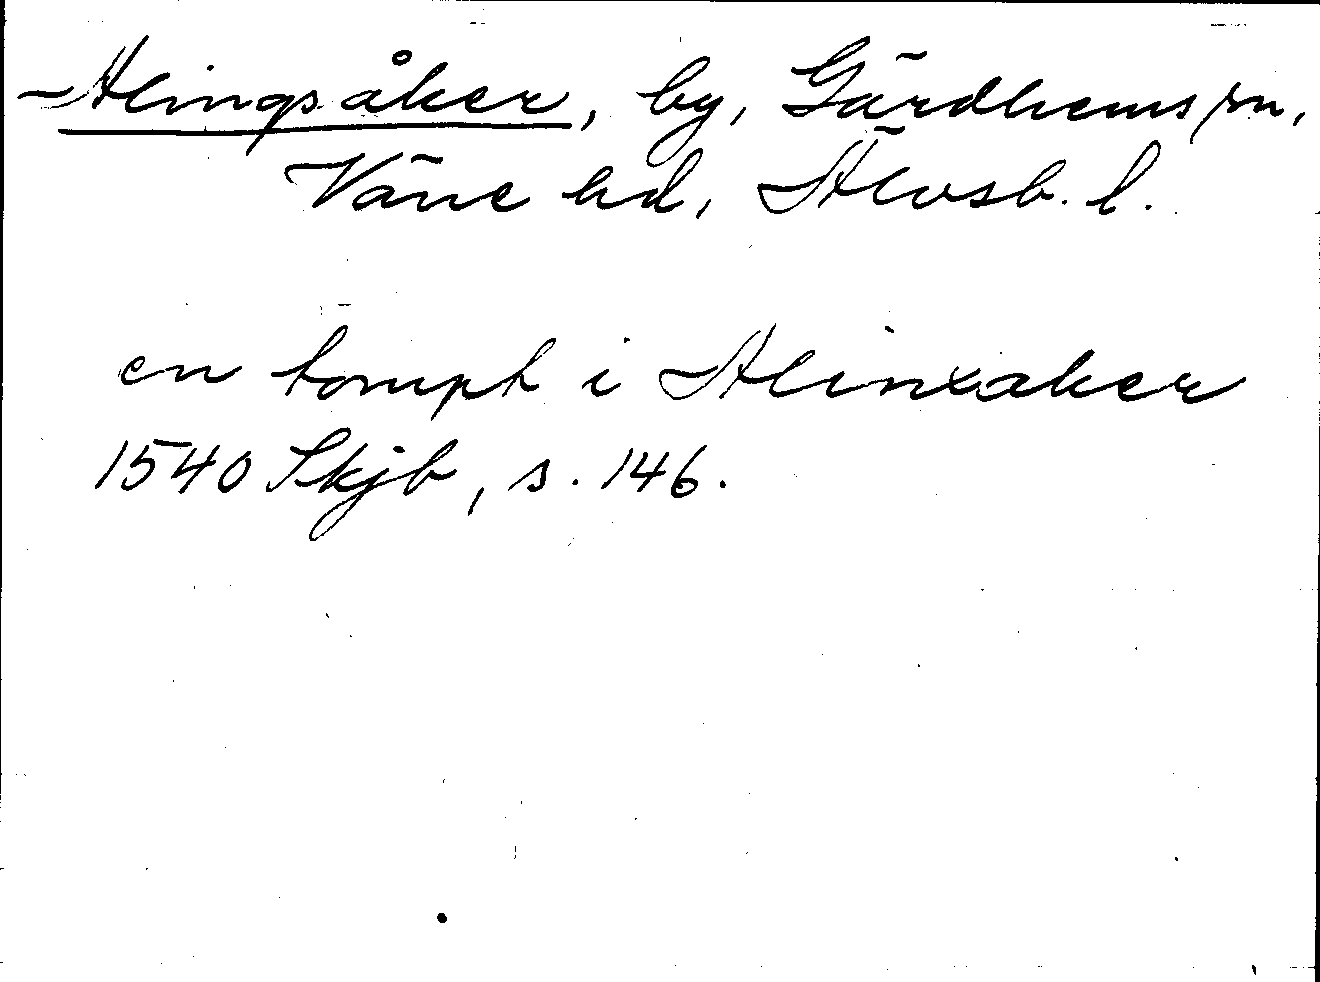 Alingsåker, by, Gärdhems sn,
Väne hd, Älvsb. l.
en tompt i Alinxaker
1540 Skjb, s. 146.